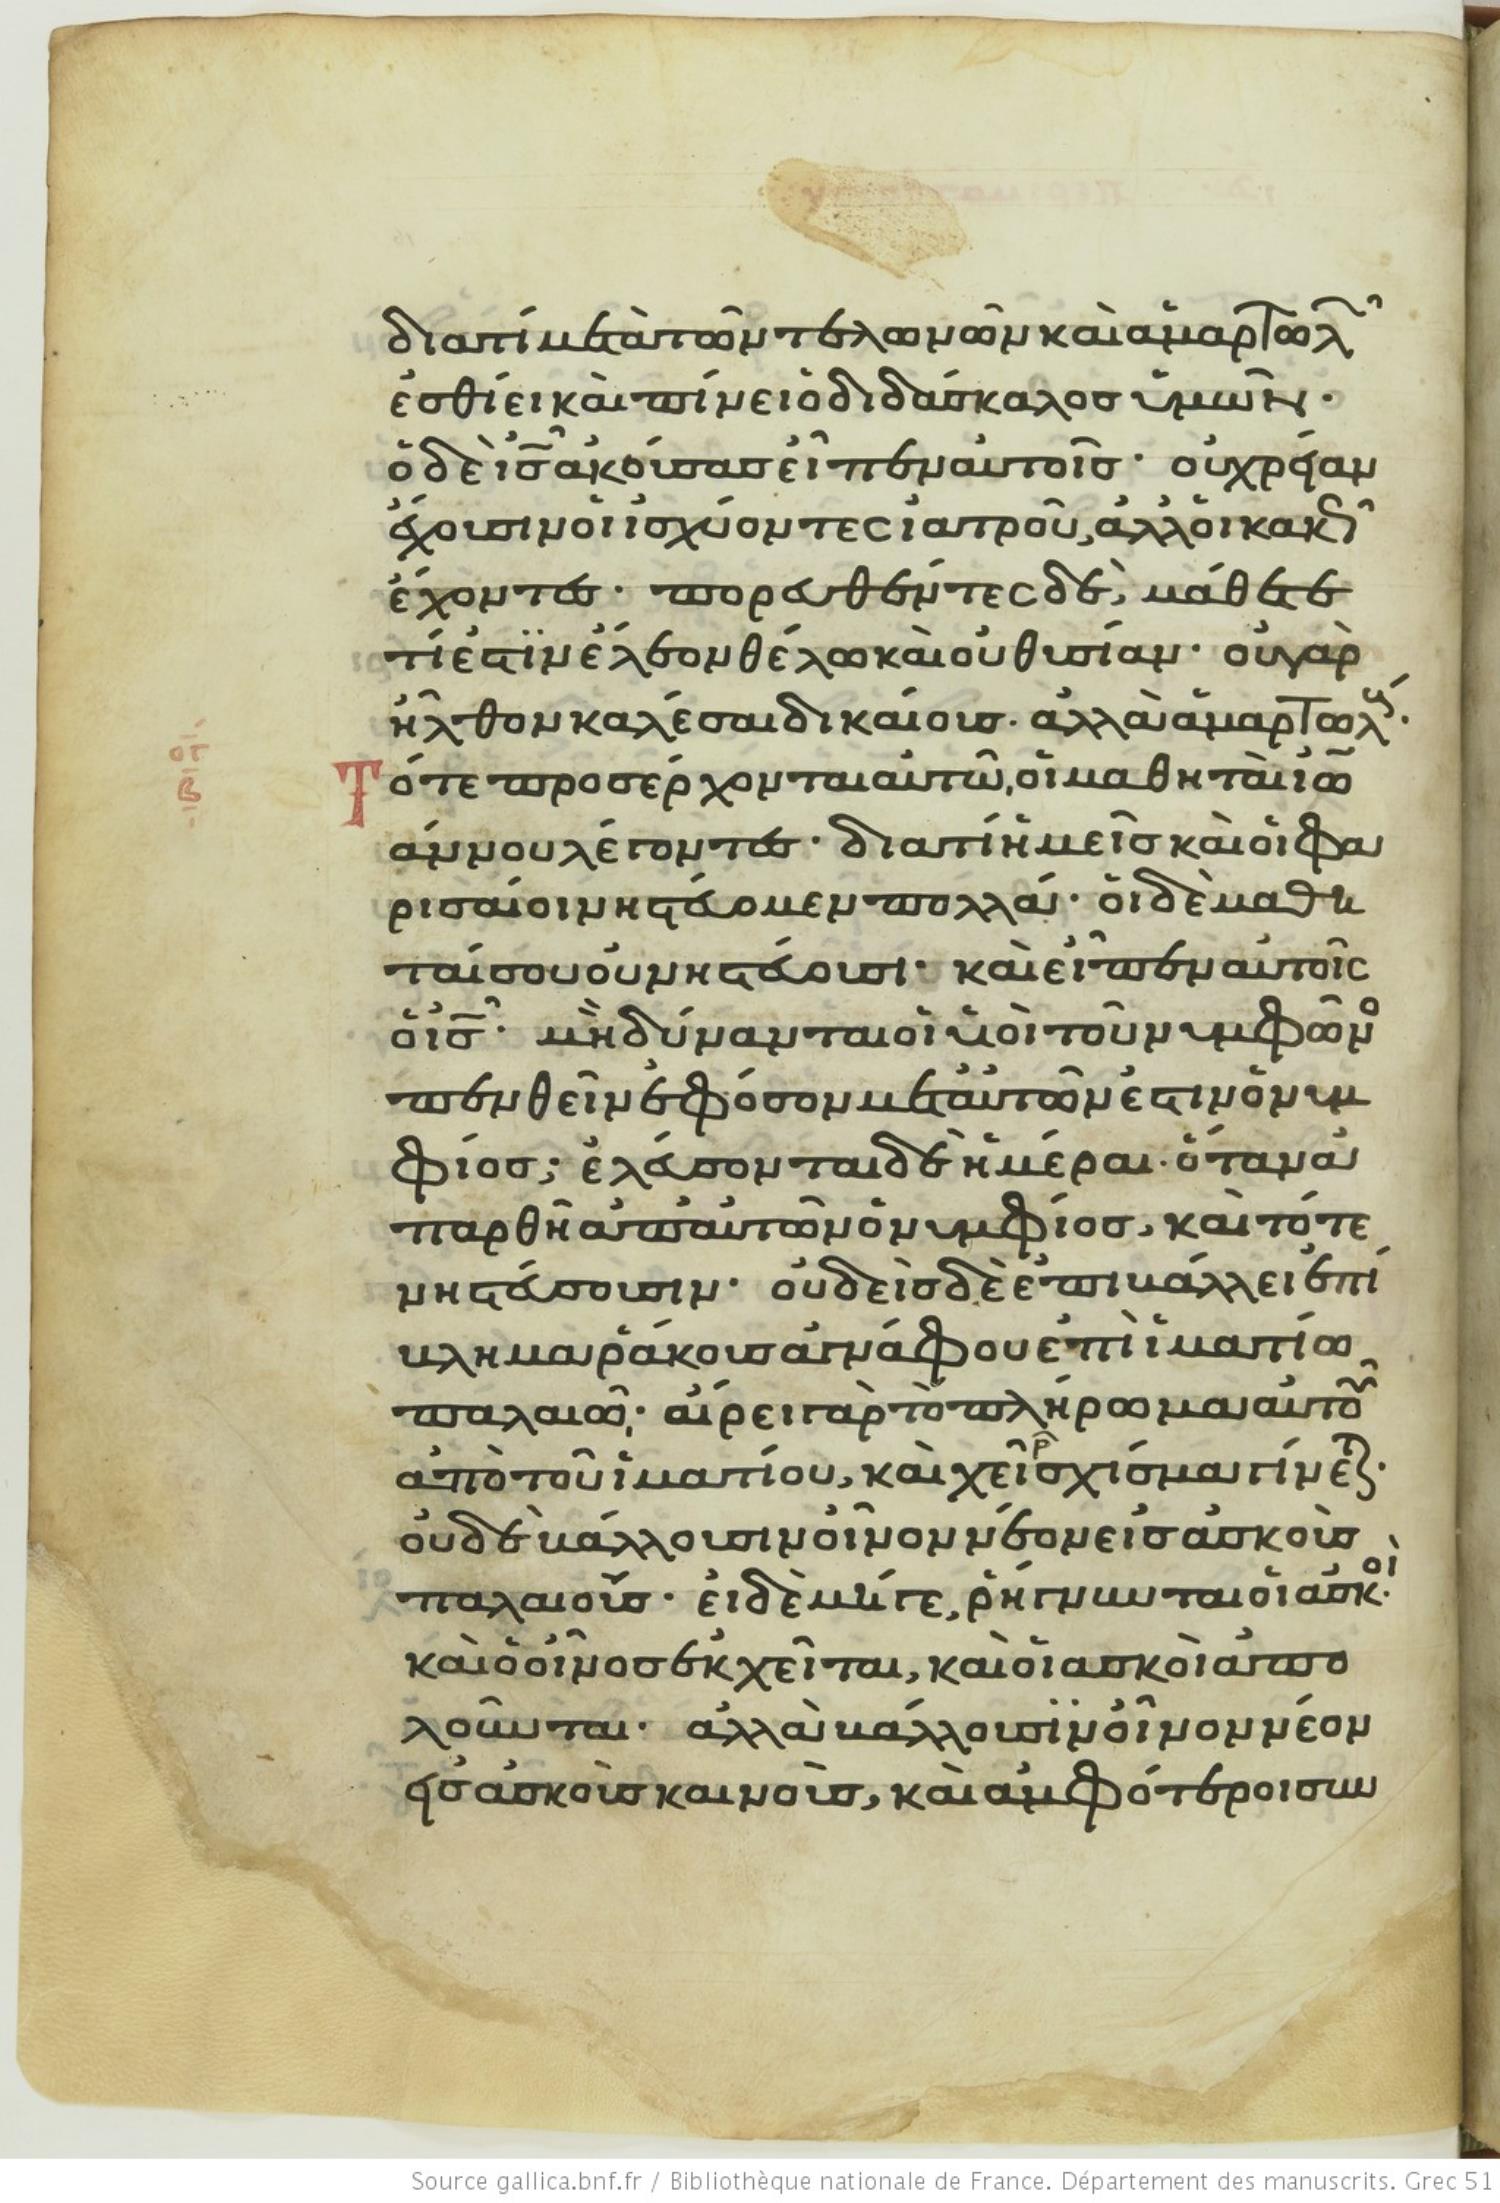 διατί μετὰ τῶν τελωνῶν καὶ ἁμαρτωλ
ἐσθίει καὶ πίνει ὁ διδάσκαλος ὑμῶν·
ὁ δὲ ις ἀκούσας εἶπεν αὐτοῖς· οὐ χρείαν
ἔχουσιν οἱ ἰσχύοντες ἰατροῦ, ἀλλ οἱ κακῶ
ἔχοντες· πορευθέντες δὲ, μάθετε
τί ἐστϊν ἔλεον θέλω καὶ οὐ θυσίαν· οὐ γὰρ
ἦλθον καλέσαι δικαίους· ἀλλὰ ἁμαρτωλούς.
Τότε προσέρχονται αὐτῶ, οἱ μαθηταὶ ἰω
άννου λέγοντες· διατί ἡμεῖς καὶ οἱ φα
ρισαίοι νηστεύομεν πολλά· οἱ δὲ μαθη
ταί σου οὐ νηστεύουσι· καὶ εἶπεν αὐτοῖς
ὁ ις· μὴ δύνανται οἱ υἱοὶ τοῦ νυμφῶνο
πενθεῖν ἐφ όσον μετ αὐτῶν ἐστιν ὁ νυμ
φίος; ἐλεύσονται δὲ ἡμέραι· ὅταν ἀ
παρθῆ ἀπ αὐτῶν ὁ νυμφίος, καὶ τότε
νηστεύσουσιν· οὐδεὶς δὲ ἐπιβάλλει ἐπί
βλημα ῥάκους ἀγνάφου ἐπὶ ἱματίω
παλαιῶ· αἴρει γὰρ τὸ πλήρωμα αὐτοῦ
ἀπὸ τοῦ ἱματίου, καὶ χεῖρ σχίσμα γίνετ.
οὐδὲ βάλλουσιν οἶνον νέον εἰς ἀσκοὺς
παλαιοῦς· εἰ δὲ μήγε, ῥήγνυνται οἱ ἀσκοὶ.
καὶ ὁ οἶνος ἐκχεῖται, καὶ οἱ ασκοὶ ἀπο
λοῦνται· ἀλλὰ βάλλουσϊν οἶνον νέον
εἰς ἀσκοὺς καινοὺς, καὶ ἀμφότεροι συν
Source gallica.bnf.fr / Bibliothèque nationale de France. Département des manuscrits. Grec 51